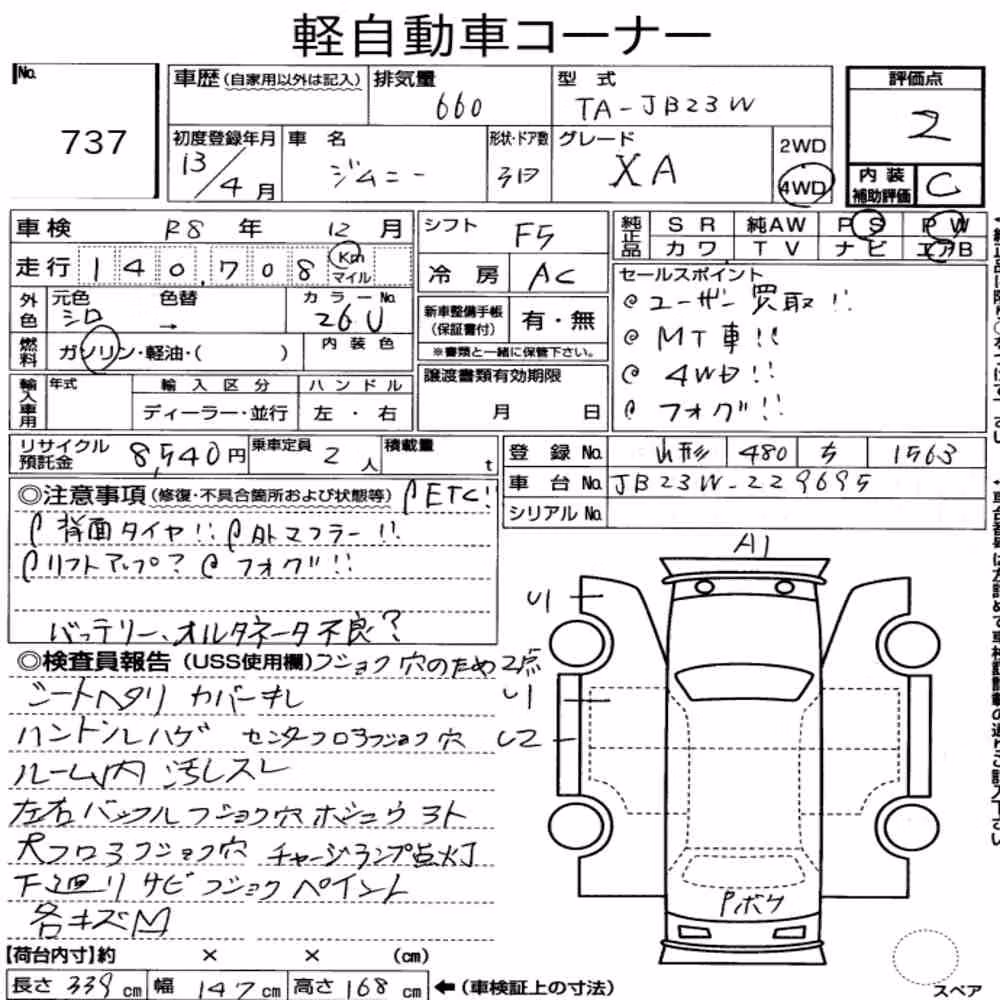 軽自動車コーナー
No. 737
車歴 (自家用以外は記入)
排気量 660
型式 TA-JB23W
評価点 2
内装補助評価 C
初度登録年月 13/4月
車名 ジムニー
形状・ドア数 3D
グレード XA
2WD
4WD
車検 R8年 12月
走行 140,708 Km マイル
シフト F5
冷房 AC
純正品 SR 純AW PS PW
カワ TV ナビ エアB
外色 元色 シロ 色替 → カラーNo. 26U
燃料 ガソリン・軽油・( )
内装色
新車整備手帳(保証書付) 有・無
※書類と一緒に保管下さい。
セールスポイント
@ユーザー買取!!
@MT車!!
@4WD!!
@フォグ!!
輸入車用 年式 輸入区分 ハンドル
ディーラー・並行 左・右
譲渡書類有効期限
月 日
リサイクル預託金 8,540円
乗車定員 2人
積載量 t
登録No. 山形 480 ち 1563
車台No. JB23W-229695
シリアルNo.
◎注意事項 (修復・不具合箇所および状態等) @ETC!!
@背面タイヤ!! @外マフラー!!
@リフトアップ? @フォグ!!
バッテリー、オルタネータ不良?
◎検査員報告 (USS使用欄) フショク穴のため2点
シートヘタリ カバーキレ
ハンドルハゲ センターフロアフショク穴
ルーム内 汚レスレ
左右バックル フショク穴 ホシュウヨト
チャージランプ点灯
下廻リサビ フショク ペイント
各キズ凹
A1
U1
U1
U2
Pボケ
スペア
【荷台内寸】約 × × (cm)
長さ 339 cm 幅 147 cm 高さ 168 cm ←(車検証上の寸法)